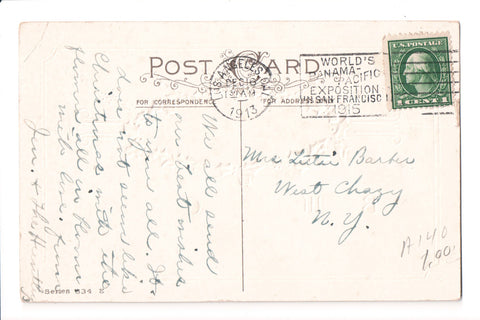 POST CARD
FOR CORRESPONDENCE
FOR ADDRESS
LOS ANGELES, CAL.
1913
WORLD'S
PANAMA-PACIFIC
EXPOSITION
IN SAN FRANCISCO
1915
U.S. POSTAGE
1 CENT 1
We all send
our best wishes
to you all. It
does not seem like
Christmas with the
flowers all in bloom
with love from
Jen. &
Mrs Lutie Barber
West Chazy
N. Y.
A140
7.00
Series 634 E